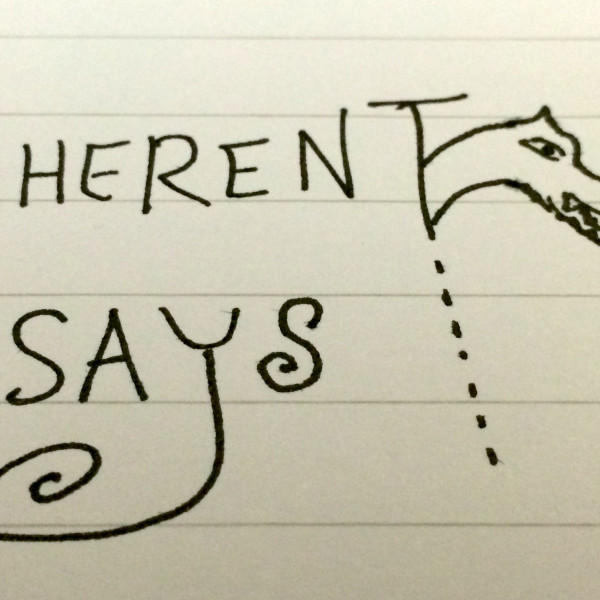 HERENT
SAYS